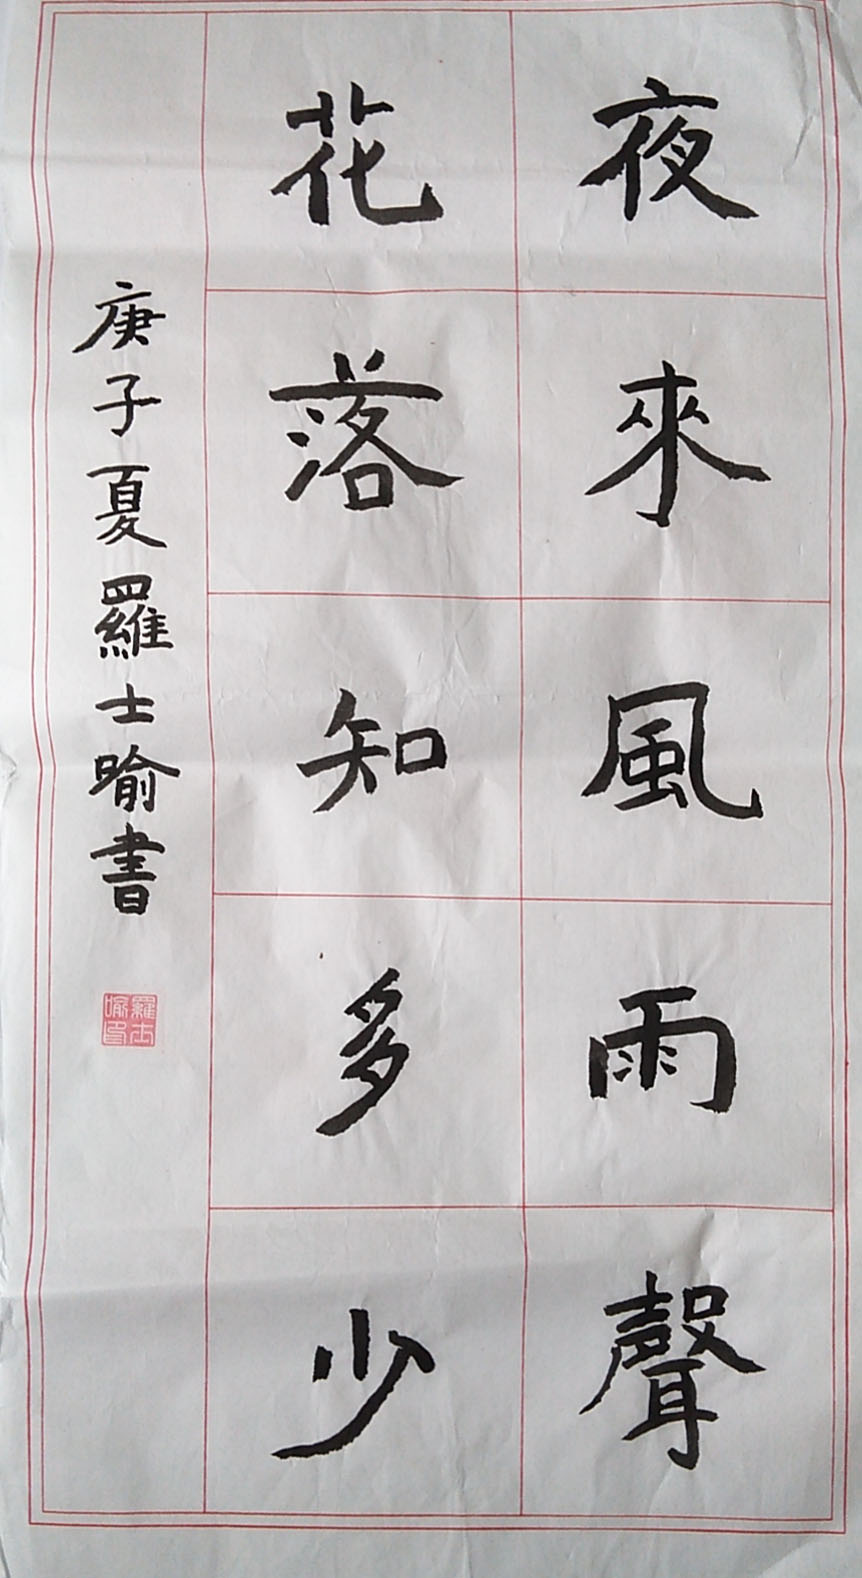 夜來風雨聲
花落知多少
庚子夏羅士喻書
羅士喻印